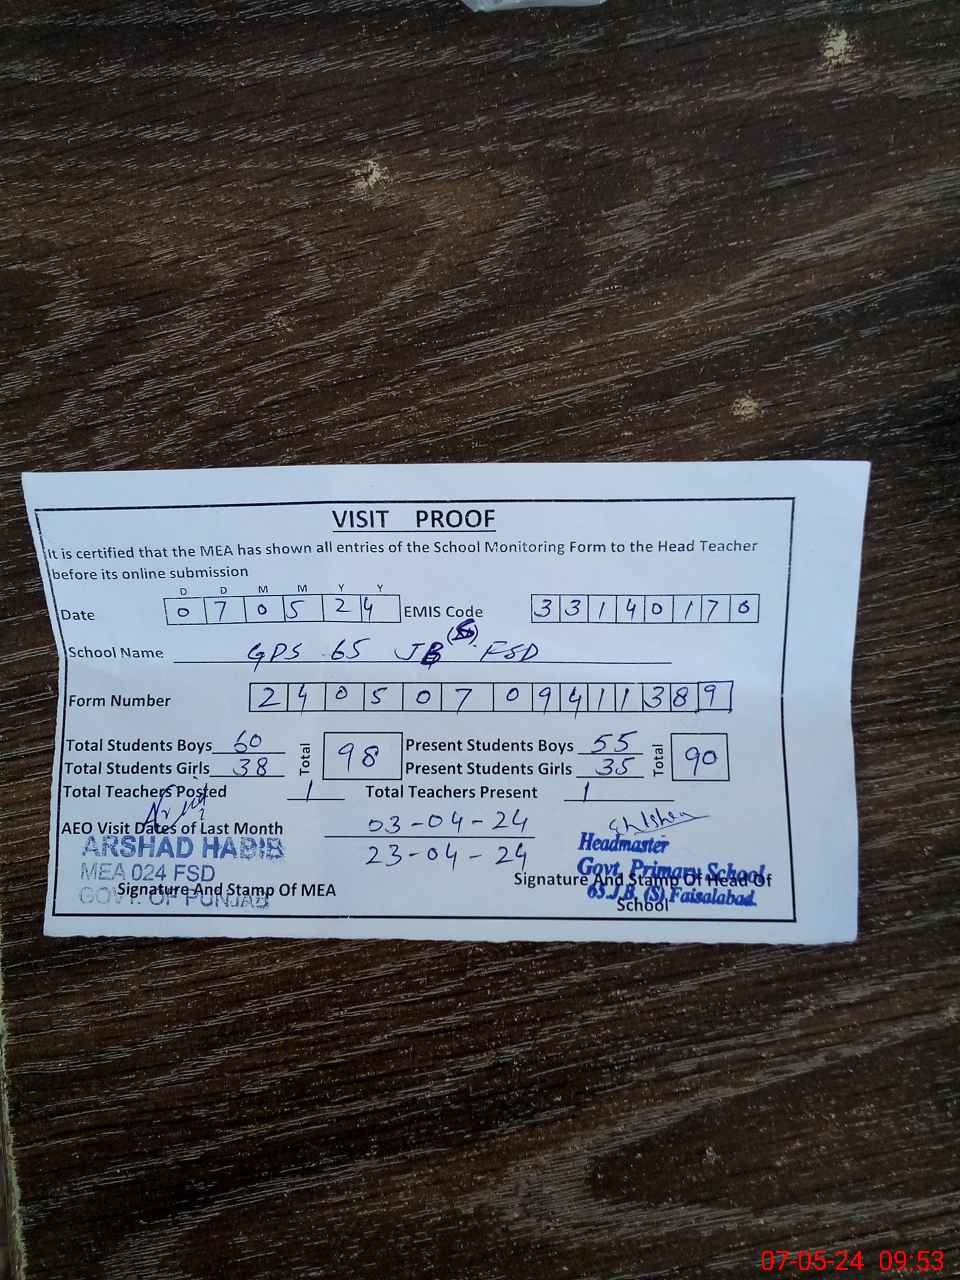 VISIT PROOF
It is certified that the MEA has shown all entries of the School Monitoring Form to the Head Teacher
before its online submission
D D M M Y Y
Date 0 7 0 5 2 4 EMIS Code 3 3 1 4 0 1 7 0
School Name GPS 65 JB (S) FSD
Form Number 2 4 0 5 0 7 0 9 4 1 1 3 8 9
Total Students Boys 60 Total 98 Present Students Boys 55 Total 90
Total Students Girls 38 Present Students Girls 35
Total Teachers Posted 1 Total Teachers Present 1
AEO Visit Dates of Last Month 03-04-24
23-04-24
ARSHAD HABIB
MEA 024 FSD
GOVT. OF PUNJAB
Signature And Stamp Of MEA
Headmaster
Govt. Primary School
65 J.B. (S) Faisalabad.
Signature And Stamp Of Head Of
School
07-05-24 09:53